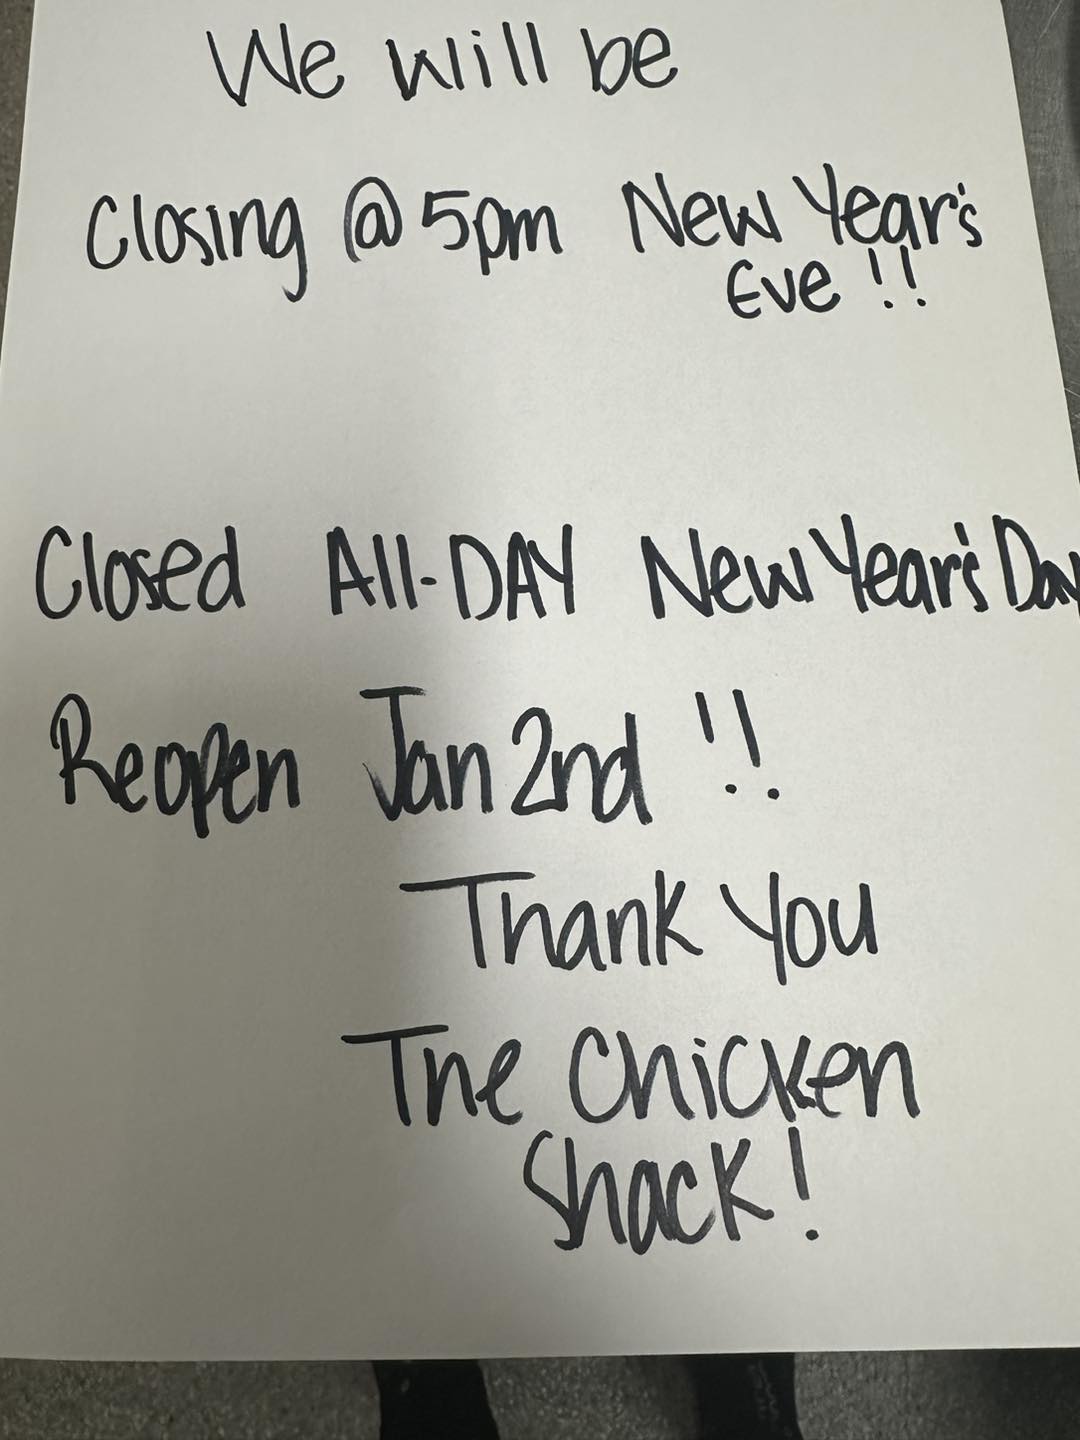 We will be
Closing @ 5pm New Year's
Eve !!
Closed All-DAY New Year's Day
Reopen Jan 2nd !!
Thank You
The Chicken
Shack!